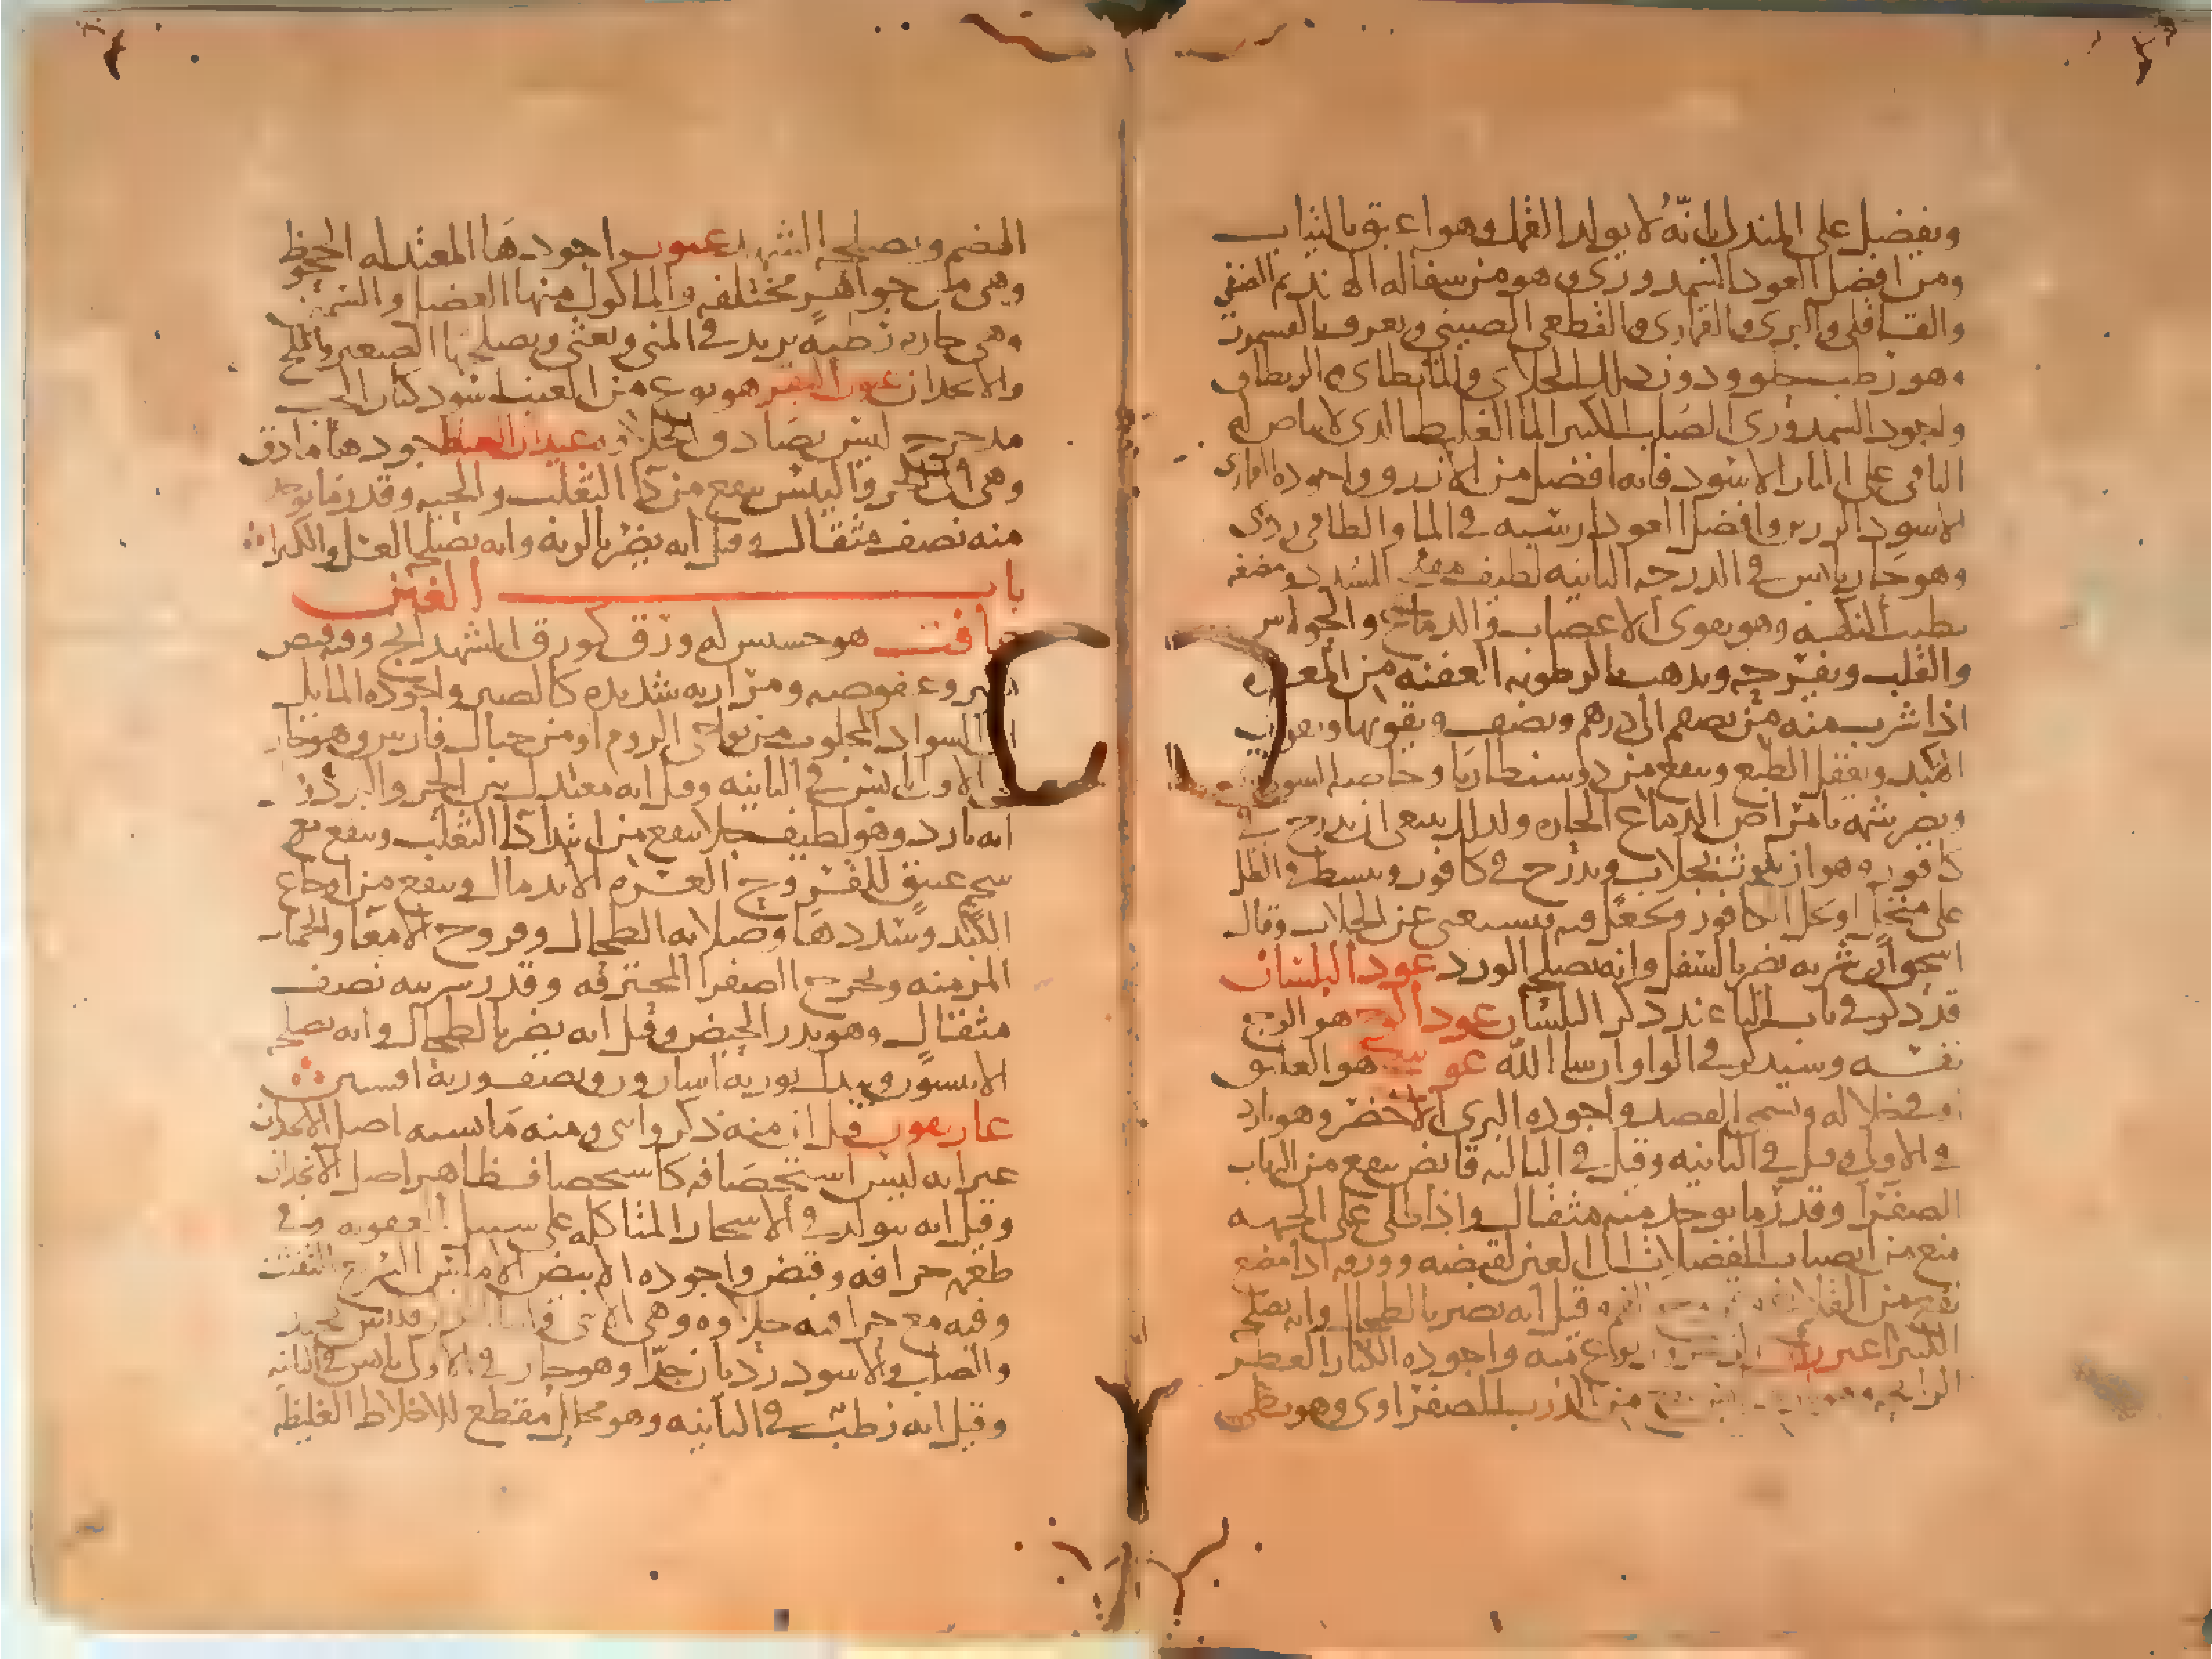 ويفضل على المندلي بانه لا يولد القمل وهو اعبق بالثياب
ومن افضل العود السمندوري وهو من سفاله الهند ثم الصنفي
والقاقلي والبري والقماري والقطعي الصيني ويعرف بالقسمور
وهو رطب حلو ودون ذلك الجلاي والمانطاي والريطاي
واجود السمندوري الصلب الكثير الماء الغليظ الذي لا بياض له
الباقي على النار الاسود فانه افضل من الازرق واجوده القماري
الاسود الرزين وافضل العود ارسبه في الماء والطافي ردي
وهو حار يابس في الدرجه الثانيه لطيف مفتح السدد ومضغه
يطيب النكهه وهو يقوي الاعصاب والدماغ والحواس
والقلب ويفرحه ويذهب بالرطوبه العفنه من المعده
اذا شرب منه من نصف الى درهم ونصف ويقويها ويقوي
الكبد ويعقل الطبع وينفع من دوسنطاريا وخاصه السوداوي
ويضر شمه بامراض الدماغ الحاره ولذلك ينبغي ان يدرج في
كافور وهو ان يلوث بجلاب ويدرج في كافور ويبسط في الظل
على منخل او يحل الكافور ويجعل فيه ويستغنى عن الجلاب وقال
اسحق ان شربه يضر بالسفل وانه يصلحه الورد عود البلسان
قد ذكر في باب الباء عند ذكر البلسان عود الوج هو الوج
نفسه وسيذكر في الواو ان شا الله عوسج هو العليق
وفضلا له ويسمى القصد واجوده البري الاخضر وهو بارد
في الاولى وقيل في الثانيه وقيل في الثالثه قابض ينفع من التهاب
الصفرا وقدر ما يوخذ منه مثقال واذا طلي على الجبهه
منع من انصباب الفضلات الى العين لقبضه وورقه اذا مضغ
نفع من القلاع وقيل انه يضر بالطحال وانه يصلحه
الكثيرا واجوده الكبار العطر
الرايحه من الذرب الصفراوي وهو بطي
الهضم ويصلحه عيون اجودها المعتدله الجحوظ
وهي من جواهر مختلفه والماكول منها العضل والشحم
وهي حاره رطبه يزيد في المني ويغثي ويصلحها الصعتر والملح
والانجدان عيون البقر هو نوع من العنب اسود كبار الحب
مدحرج ليس بصادق الحلاوه عيدان اجودها ما دق
وهي ينفع من داء الثعلب والحيه وقدر ما يوخذ
منه نصف مثقال وقيل انه يضر بالريه وانه يصلحه العسل والكثيرا
باب الغين
غافت هو حشيش له ورق كورق الشهدانج وفيه قبض
وعفوصه ومراره شديده كالصبر واجوده المايل
الى السواد المجلوب من نواحي الروم او من جبال فارس وهو حار
في الاولى يابس في الثانيه وقيل انه معتدل بين الحر والبرد
انه بارد وهو لطيف جلا ينفع من ابتدا داء الثعلب وينفع مع
شحم عتيق للقروح العسره الاندمال وينفع من اوجاع
الكبد وسددها وصلابه الطحال وقروح الامعا والحميات
المزمنه ويخرج الصفرا المحترقه وقدر شربته نصف
مثقال وهو يدر الحيض وقيل انه يضر بالطحال وانه يصلحه
الانيسون وبدله بوزنه اسارون ونصف وزنه افسنتين
غاريقون قيل ان منه ذكر وانثى ومنه ما يشبه اصل الانجدان
غير انه ليس استحصافه كاستحصاف ظاهر اصل الانجدان
وقيل انه يتولد في الاشجار المتاكله على سبيل العفونه وفي
طعمه حرافه وقبض واجوده الابيض الاملس السريع التفتت
وفيه مع حرافته حلاوه وهي الانثى
والصلب والاسود رديان جدا وهو حار في الاولى يابس في الثانيه
وقيل انه رطب في الثانيه وهو محلل مقطع للاخلاط الغليظه